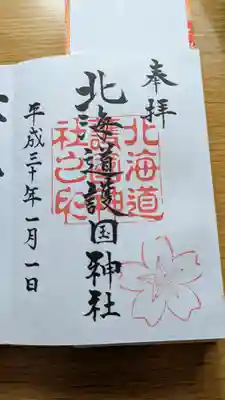 奉拝
北海道護国神社
北海道
護國神
社之印
平成三十年一月一日